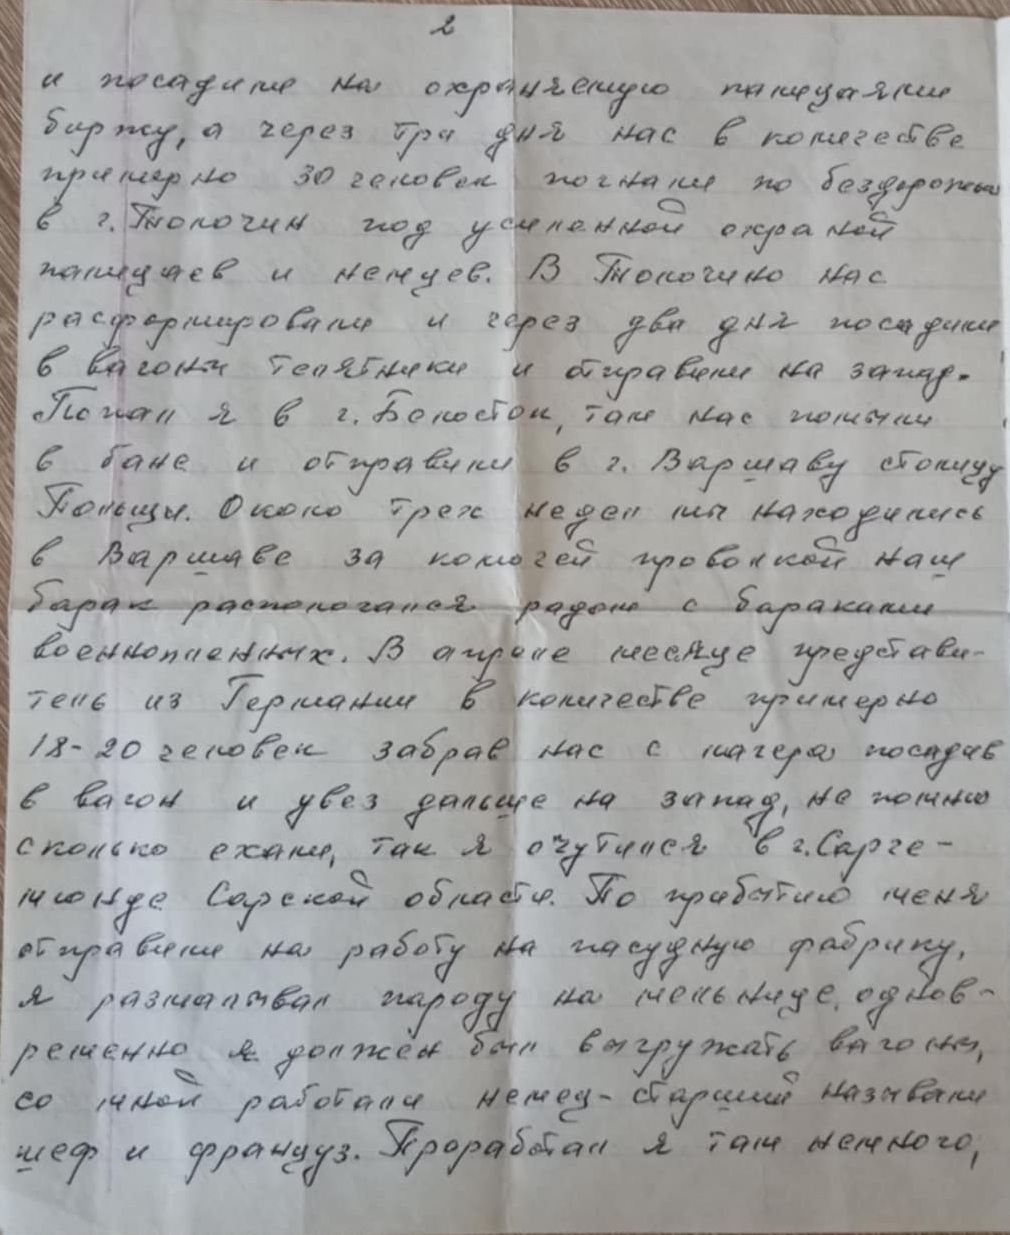 2
и посадили на охраняемую палицаями
биржу, а через три дня нас в количестве
примерно 30 человек погнали по бездорожью
в г. Толочин под усиленной охраной
палицаев и немцев. В Толочино нас
расформировали и через два дня посадили
в вагоны телятники и отправили на запад.
Попал я в г. Белосток, там нас помыли
в бане и отправили в г. Варшаву столицу
Польщы. Около трех недел мы находились
в Варшаве за колючей проволкой наш
барак распологался радом с бараками
военнопленных. В апреле месяце представи-
тель из Германии в количестве примерно
18-20 человек забрав нас с лагеря посадив
в вагон и увез дальше на запад, не помню
сколько ехали, так я очутился в г. Сарге-
мюнде Сарской области. По прибытию меня
отправили на работу на пасудную фабрику,
я размалывал пароду на мельнице, однов-
ременно я должен был выгружать вагоны,
со мной работали немец-старший называли
шеф и француз. Проработал я там немного,